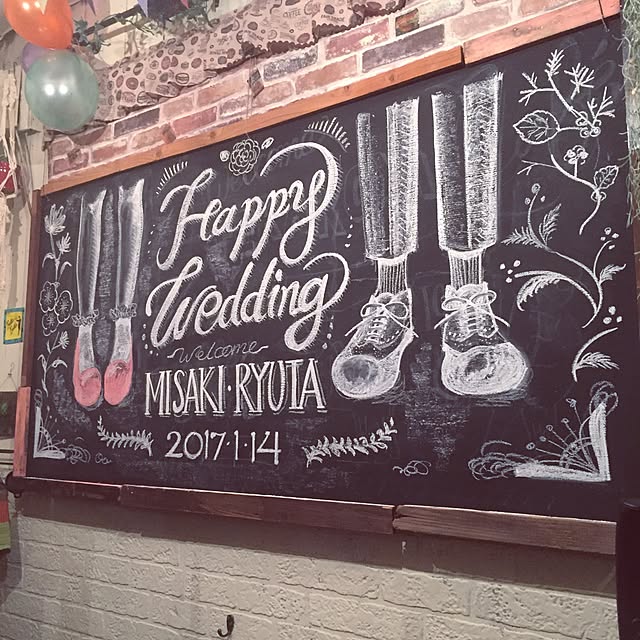 Happy
Wedding
Welcome
MISAKI·RYUTA
2017·1·14